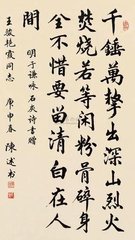 千錘萬擊出深山烈火
焚燒若等閒粉骨碎身
全不怕要留清白在人
間
明于谦咏石灰诗書贈
王艳霞同志 庚申春 陳述书